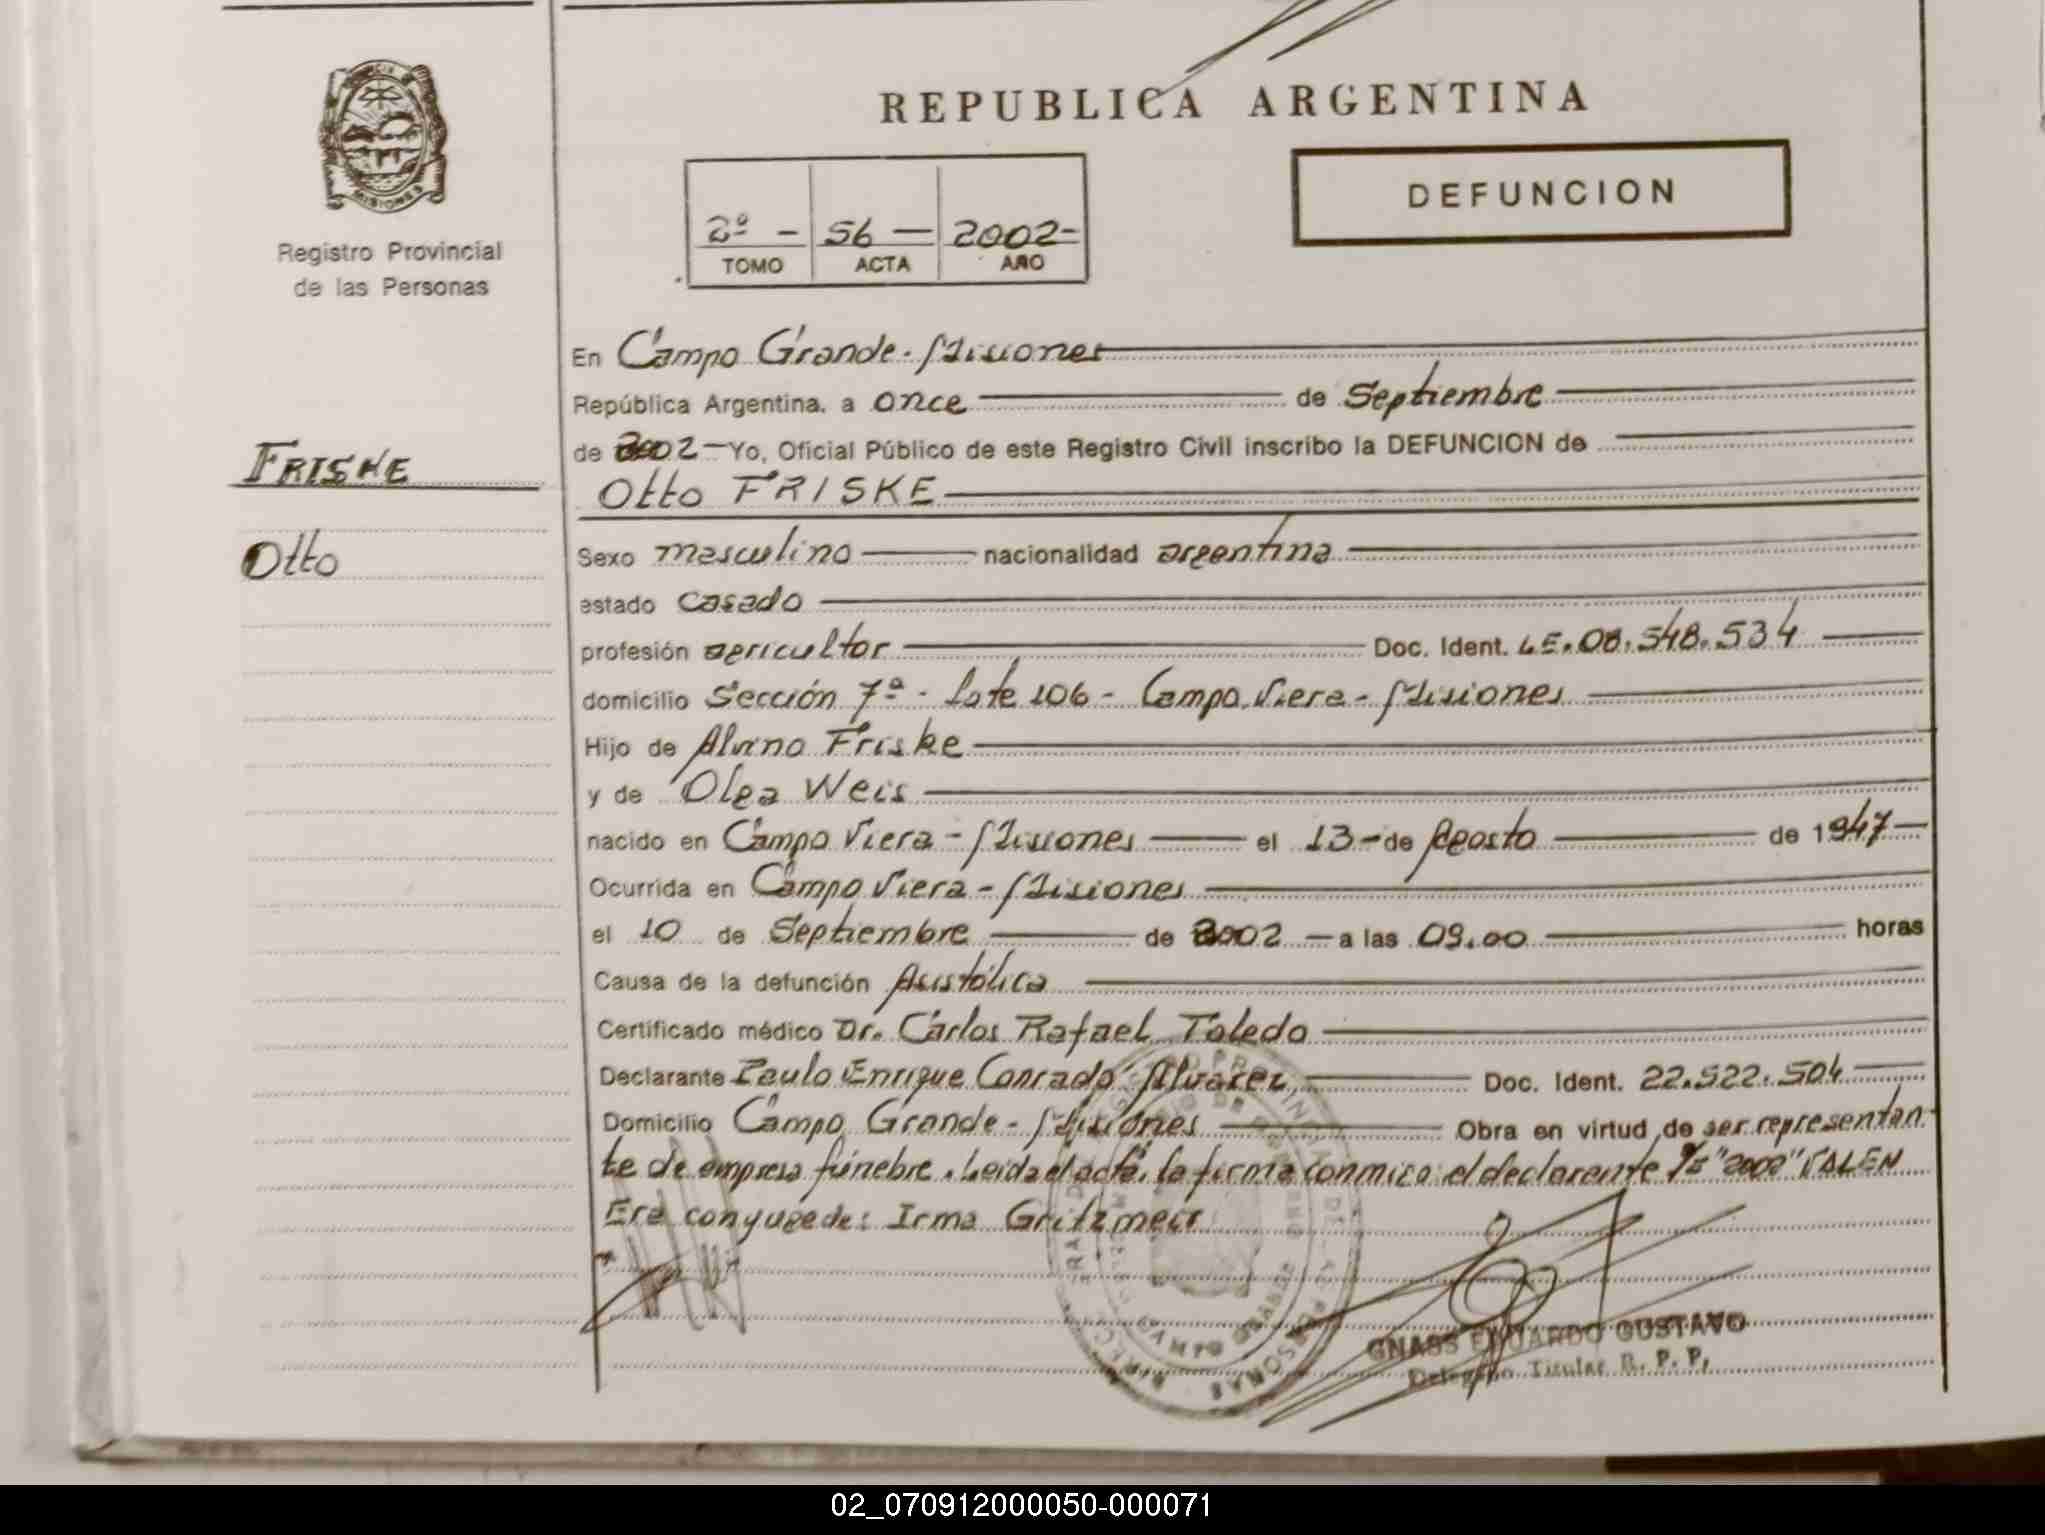 REPUBLICA ARGENTINA
DEFUNCION
2º - 56 - 2002-
TOMO ACTA AÑO
MISIONES
Registro Provincial
de las Personas
FRISKE
Otto
En Campo Grande - Misiones
República Argentina, a once de Septiembre
de 2002 - Yo, Oficial Público de este Registro Civil inscribo la DEFUNCION de
Otto FRISKE
Sexo masculino nacionalidad argentina
estado casado
profesión agricultor Doc. Ident. LE. 08.548.534
domicilio Sección 7ª - Lote 106 - Campo Viera - Misiones
Hijo de Alvino Friske
y de Olga Weis
nacido en Campo Viera - Misiones el 13 - de Agosto de 1947
Ocurrida en Campo Viera - Misiones
el 10 de Septiembre de 2002 - a las 09.00 horas
Causa de la defunción Asistólica
Certificado médico Dr. Carlos Rafael Toledo
Declarante Paulo Enrique Conrado Alvarez, Doc. Ident. 22.522.504
Domicilio Campo Grande - Misiones Obra en virtud de ser representan-
te de empresa fúnebre. Leida el acta, la firma conmigo el declarante "2002" VALEN
Era conyuge de: Irma Gritzmeir
GNASS EDUARDO GUSTAVO
Delegado Titular R. P. P.
02_070912000050-000071